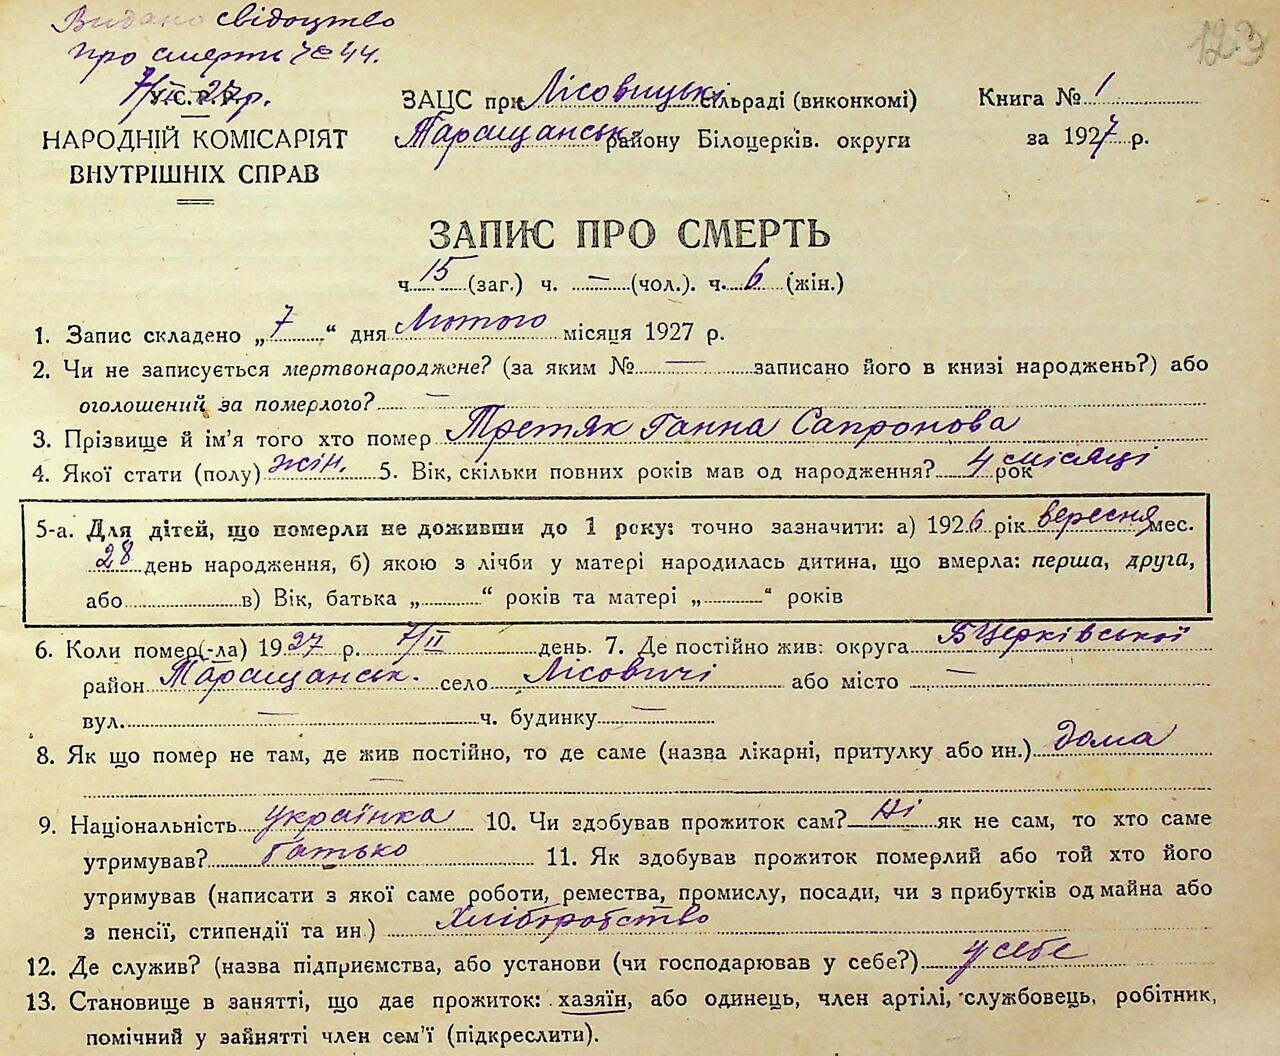 Видано свідоцтво
про смерть № 44.
7/II 27 р.
123
У.С.Р.Р.
НАРОДНІЙ КОМІСАРІЯТ
ВНУТРІШНІХ СПРАВ
ЗАЦС при Лісовицькі сільраді (виконкомі)
Таращанськ району Білоцерків. округи
Книга № 1
за 1927 р.
ЗАПИС ПРО СМЕРТЬ
ч. 15 (заг.) ч. — (чол.). ч. 6 (жін.)
1. Запис складено „7“ дня Лютого місяця 1927 р.
2. Чи не записується мертвонароджене? (за яким № — записано його в книзі народжень?) або
оголошений за померлого? —
3. Прізвище й ім'я того хто помер Третяк Ганна Сапронова
4. Якої стати (полу) жін. 5. Вік, скільки повних років мав од народження? 4 місяці рок
5-а. Для дітей, що померли не доживши до 1 року: точно зазначити: а) 1926 рік вересня мес.
28 день народження, б) якою з лічби у матері народилась дитина, що вмерла: перша, друга,
або в) Вік, батька „ “ років та матері „ “ років
6. Коли помер(-ла) 1927 р. 7/II день. 7. Де постійно жив: округа БЦерківської
район Таращанськ. село Лісовичі або місто —
вул. — ч. будинку —
8. Як що помер не там, де жив постійно, то де саме (назва лікарні, притулку або ин.) дома
—
9. Національність українка 10. Чи здобував прожиток сам? Ні як не сам, то хто саме
утримував? батько 11. Як здобував прожиток померлий або той хто його
утримував (написати з якої саме роботи, ремества, промислу, посади, чи з прибутків од майна або
з пенсії, стипендії та ин.) Хліборобство
12. Де служив? (назва підприємства, або установи (чи господарював у себе?) у себе
13. Становище в занятті, що дає прожиток: хазяїн, або одинець, член артілі, службовець, робітник,
помічний у зайнятті член сем'ї (підкреслити).